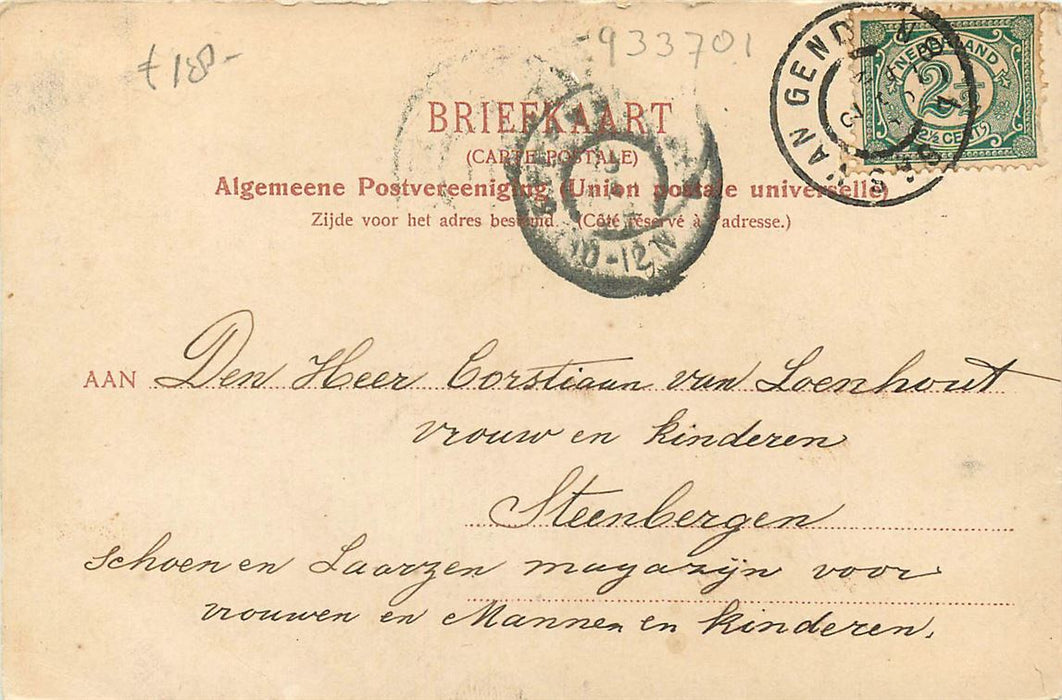 £ 180-
933701
NEDERLAND
2½
(2½ CENT)
VAN GEND
BRIEFKAART
(CARTE POSTALE)
Algemeene Postvereeniging (Union postale universelle)
Zijde voor het adres bestemd. (Côté réservé à l'adresse.)
10-12 N
AAN Den Heer Corstiaan van Loenhout
vrouw en kinderen
Steenbergen
schoen en Laarzen magazijn voor
vrouwen en Mannen en kinderen.